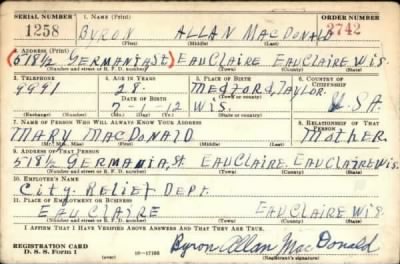 SERIAL NUMBER 1. NAME (Print) ORDER NUMBER
1258 BYRON ALLAN MACDONALD 2742
(First) (Middle) (Last)
2. ADDRESS (Print)
(518½ GERMANIA St.) EAU CLAIRE EAU CLAIRE WIS.
(Number and street or R. F. D. number) (Town) (County) (State)
3. TELEPHONE 4. AGE IN YEARS 5. PLACE OF BIRTH 6. COUNTRY OF CITIZENSHIP
9991 28. MEDFORD, TAYLOR
DATE OF BIRTH (Town) (County) U.S.A
12 WIS.
(Exchange) (Number) (Mo.) (Day) (Yr.) (State or country)
7. NAME OF PERSON WHO WILL ALWAYS KNOW YOUR ADDRESS 8. RELATIONSHIP OF THAT PERSON
MARY MACDONALD MOTHER
(Mr., Mrs., Miss) (First) (Middle) (Last)
9. ADDRESS OF THAT PERSON
518½ GERMANIA, St. EAU CLAIRE, EAU CLAIRE WIS.
(Number and street or R. F. D. number) (Town) (County) (State)
10. EMPLOYER'S NAME
CITY. RELIEF DEPT.
11. PLACE OF EMPLOYMENT OR BUSINESS
EAU CLAIRE EAU CLAIRE WIS.
(Number and street or R. F. D. number) (Town) (County) (State)
I AFFIRM THAT I HAVE VERIFIED ABOVE ANSWERS AND THAT THEY ARE TRUE.
REGISTRATION CARD
D. S. S. Form 1 Byron Allan Mac Donald
(Registrant's signature)